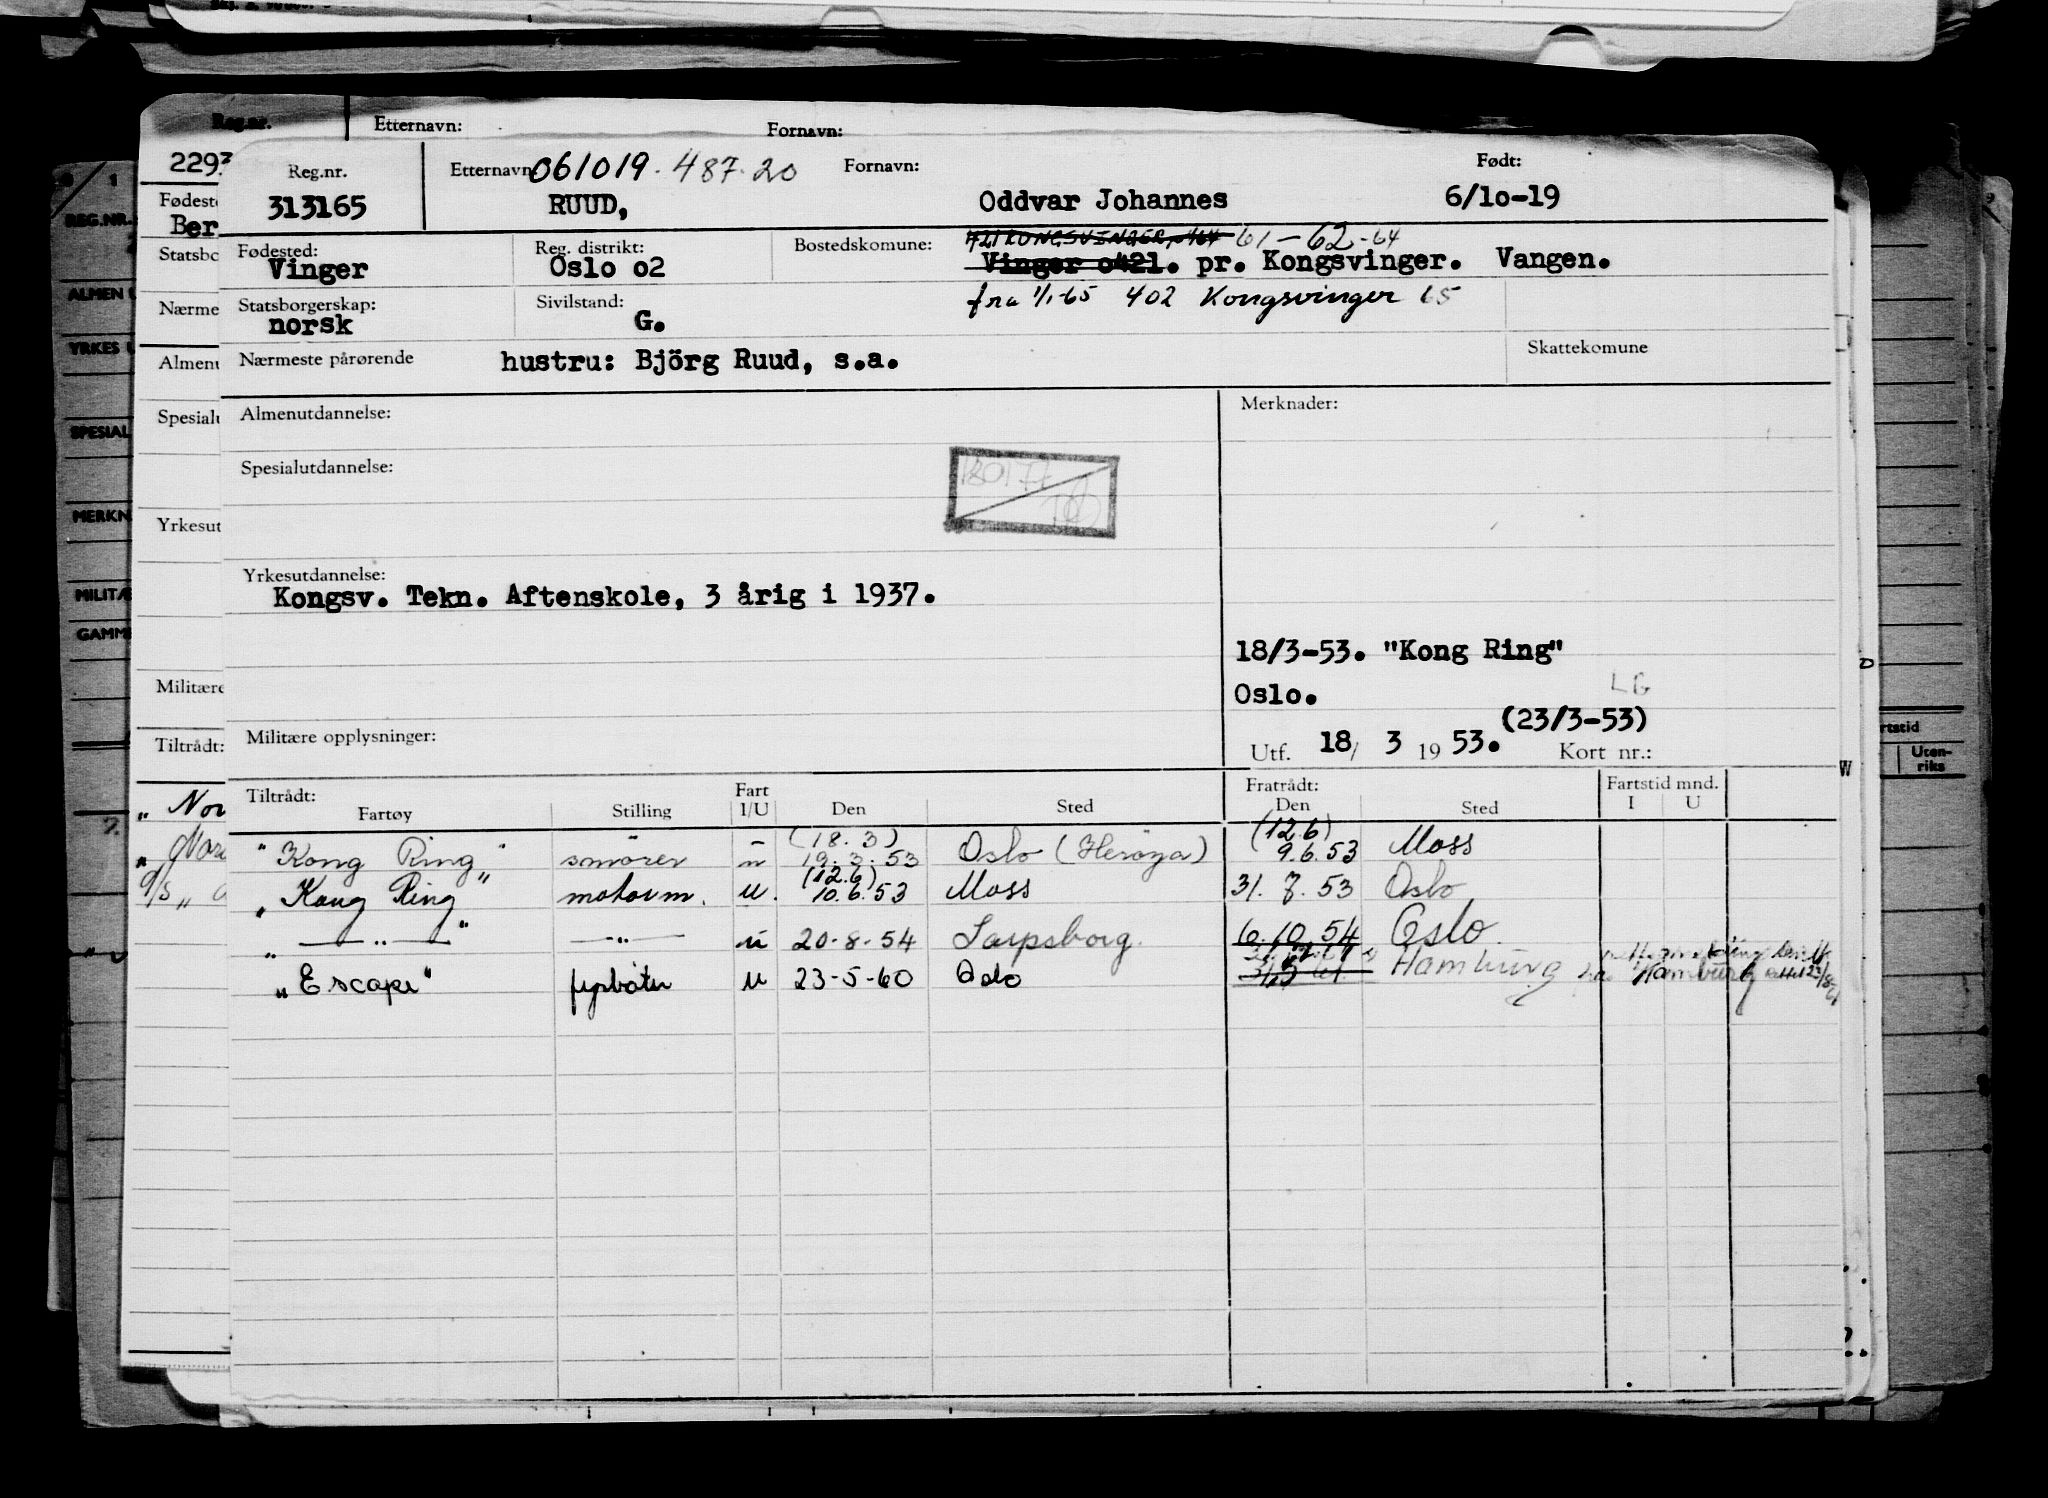 Reg.nr. Etternavn: Fornavn:
2293
Reg.nr. Etternavn 061019. 487.20 Fornavn: Født:
313165 RUUD, Oddvar Johannes 6/1o-19
Fødested: Reg. distrikt: Bostedskomune: 421 KONGSVINGER, 464 61-62-64
Vinger Oslo o2 Vinger o421. pr. Kongsvinger. Vangen.
Statsborgerskap: Sivilstand: fra 1/1-65 402 Kongsvinger 65
norsk G.
Nærmeste pårørende hustru: Björg Ruud, s.a. Skattekomune
Almenutdannelse: Merknader:
Spesialutdannelse:
Yrkesutdannelse:
Kongsv. Tekn. Aftenskole, 3 årig i 1937.
18/3-53. "Kong Ring"
Oslo. LG
(23/3-53)
Militære opplysninger: Utf. 18/ 3 19 53. Kort nr.:
Tiltrådt: Fart Fratrådt: Fartstid mnd.
Fartøy Stilling I/U Den Sted Den Sted I U
(18.3) (12.6)
"Kong Ring" smører u 19.3.53 Oslo (Herøya) 9.6.53 Moss
(12.6)
"Kong Ring" motorm. u. 10.6.53 Moss 31.7.53 Oslo
„ — „ — " — „ — u 20-8-54 Sarpsborg. 6.10.54 Oslo.
„Escape" fyrbøter u 23-5-60 Oslo Hamburg Hamburg